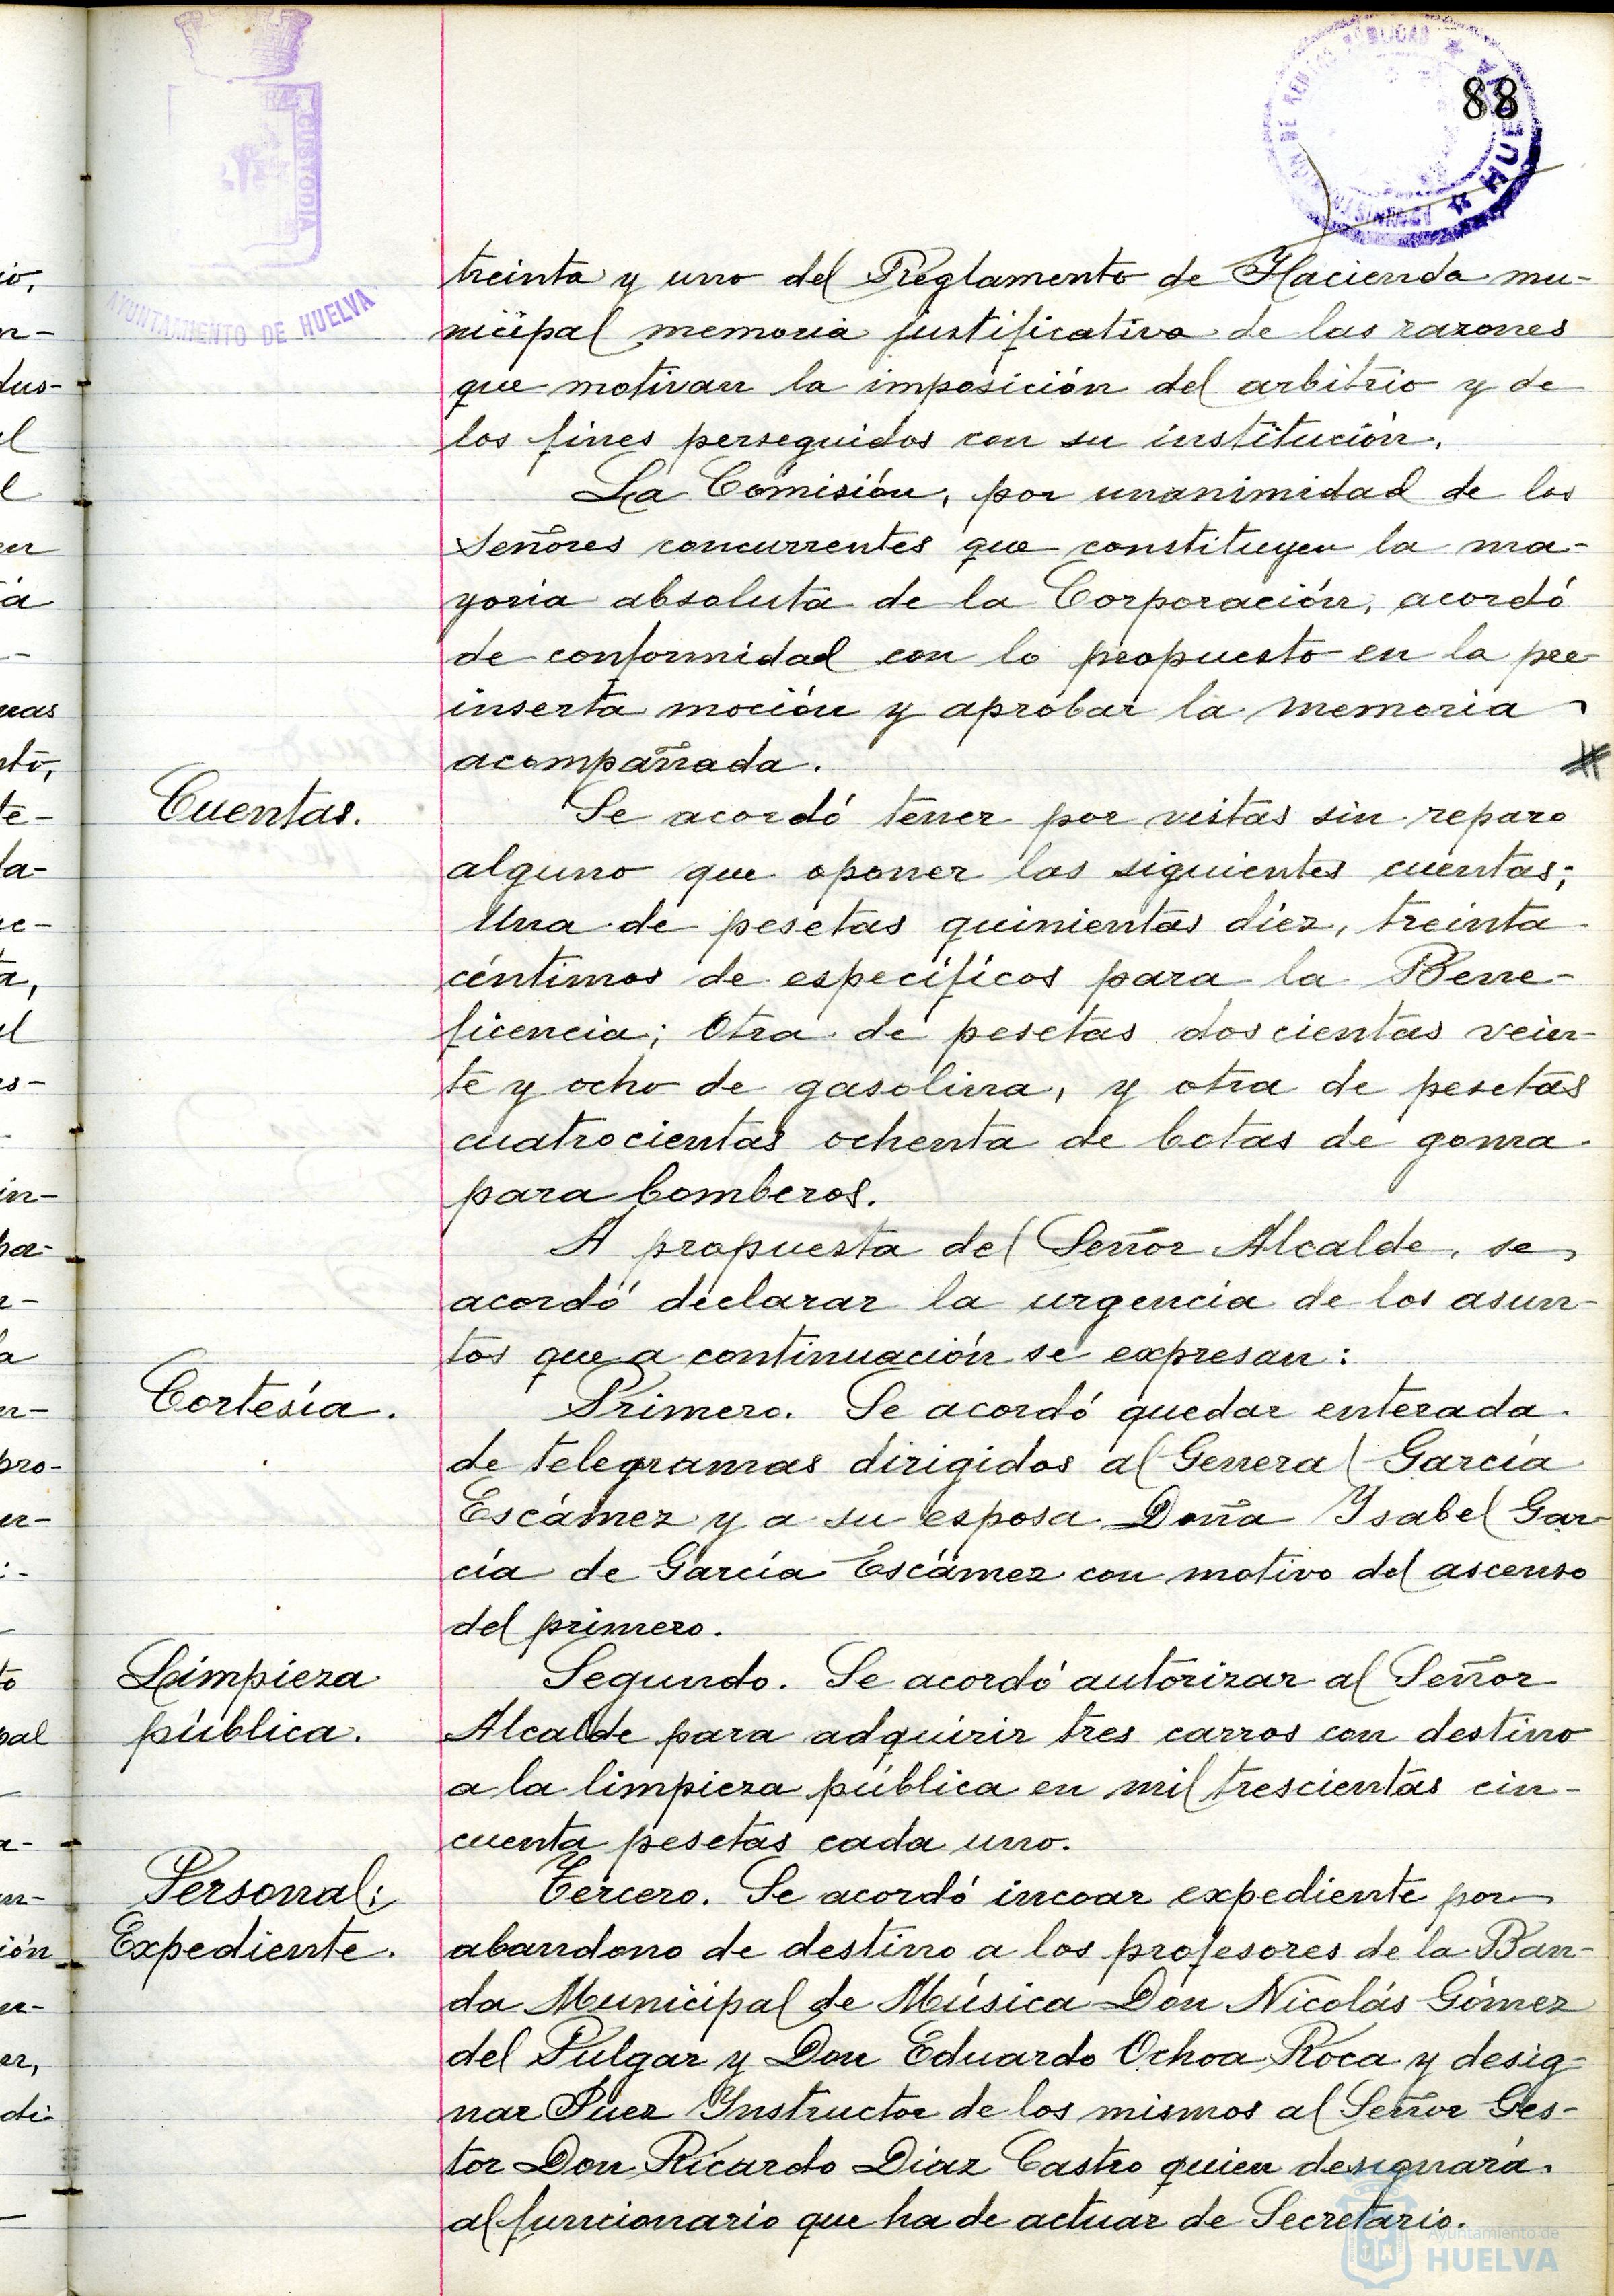 88
AYUNTAMIENTO DE HUELVA
HUE
treinta y uno del Reglamento de Hacienda mu-
nicipal memoria justificativa de las razones
que motivan la imposición del arbitrio y de
los fines perseguidos con su institución.
La Comisión, por unanimidad de los
Señores concurrentes que constituyen la ma-
yoria absoluta de la Corporación, acordó
de conformidad con lo propuesto en la pre-
inserta moción y aprobar la memoria
acompañada.
Cuentas.
Se acordó tener por vistas sin reparo
alguno que oponer las siguientes cuentas:
Una de pesetas quinientas diez, treinta
céntimos de específicos para la Bene-
ficencia; Otra de pesetas doscientas vein-
te y ocho de gasolina, y otra de pesetas
cuatrocientas ochenta de botas de goma
para bomberos.
A propuesta del Señor Alcalde, se
acordó declarar la urgencia de los asun-
tos que a continuación se expresan:
Cortesía.
Primero. Se acordó quedar enterada
de telegramas dirigidos al General García
Escámez y a su esposa Doña Isabel Gar-
cía de García Escámez con motivo del ascenso
del primero.
Limpieza
pública.
Segundo. Se acordó autorizar al Señor
Alcalde para adquirir tres carros con destino
a la limpieza pública en mil trescientas cin-
cuenta pesetas cada uno.
Personal:
Expediente.
Tercero. Se acordó incoar expediente por
abandono de destino a los profesores de la Ban-
da Municipal de Música Don Nicolás Gómez
del Pulgar y Don Eduardo Ochoa Roca y desig-
nar Juez Instructor de los mismos al Señor Ges-
tor Don Ricardo Díaz Castro quien designará
al funcionario que ha de actuar de Secretario.
Ayuntamiento de
HUELVA